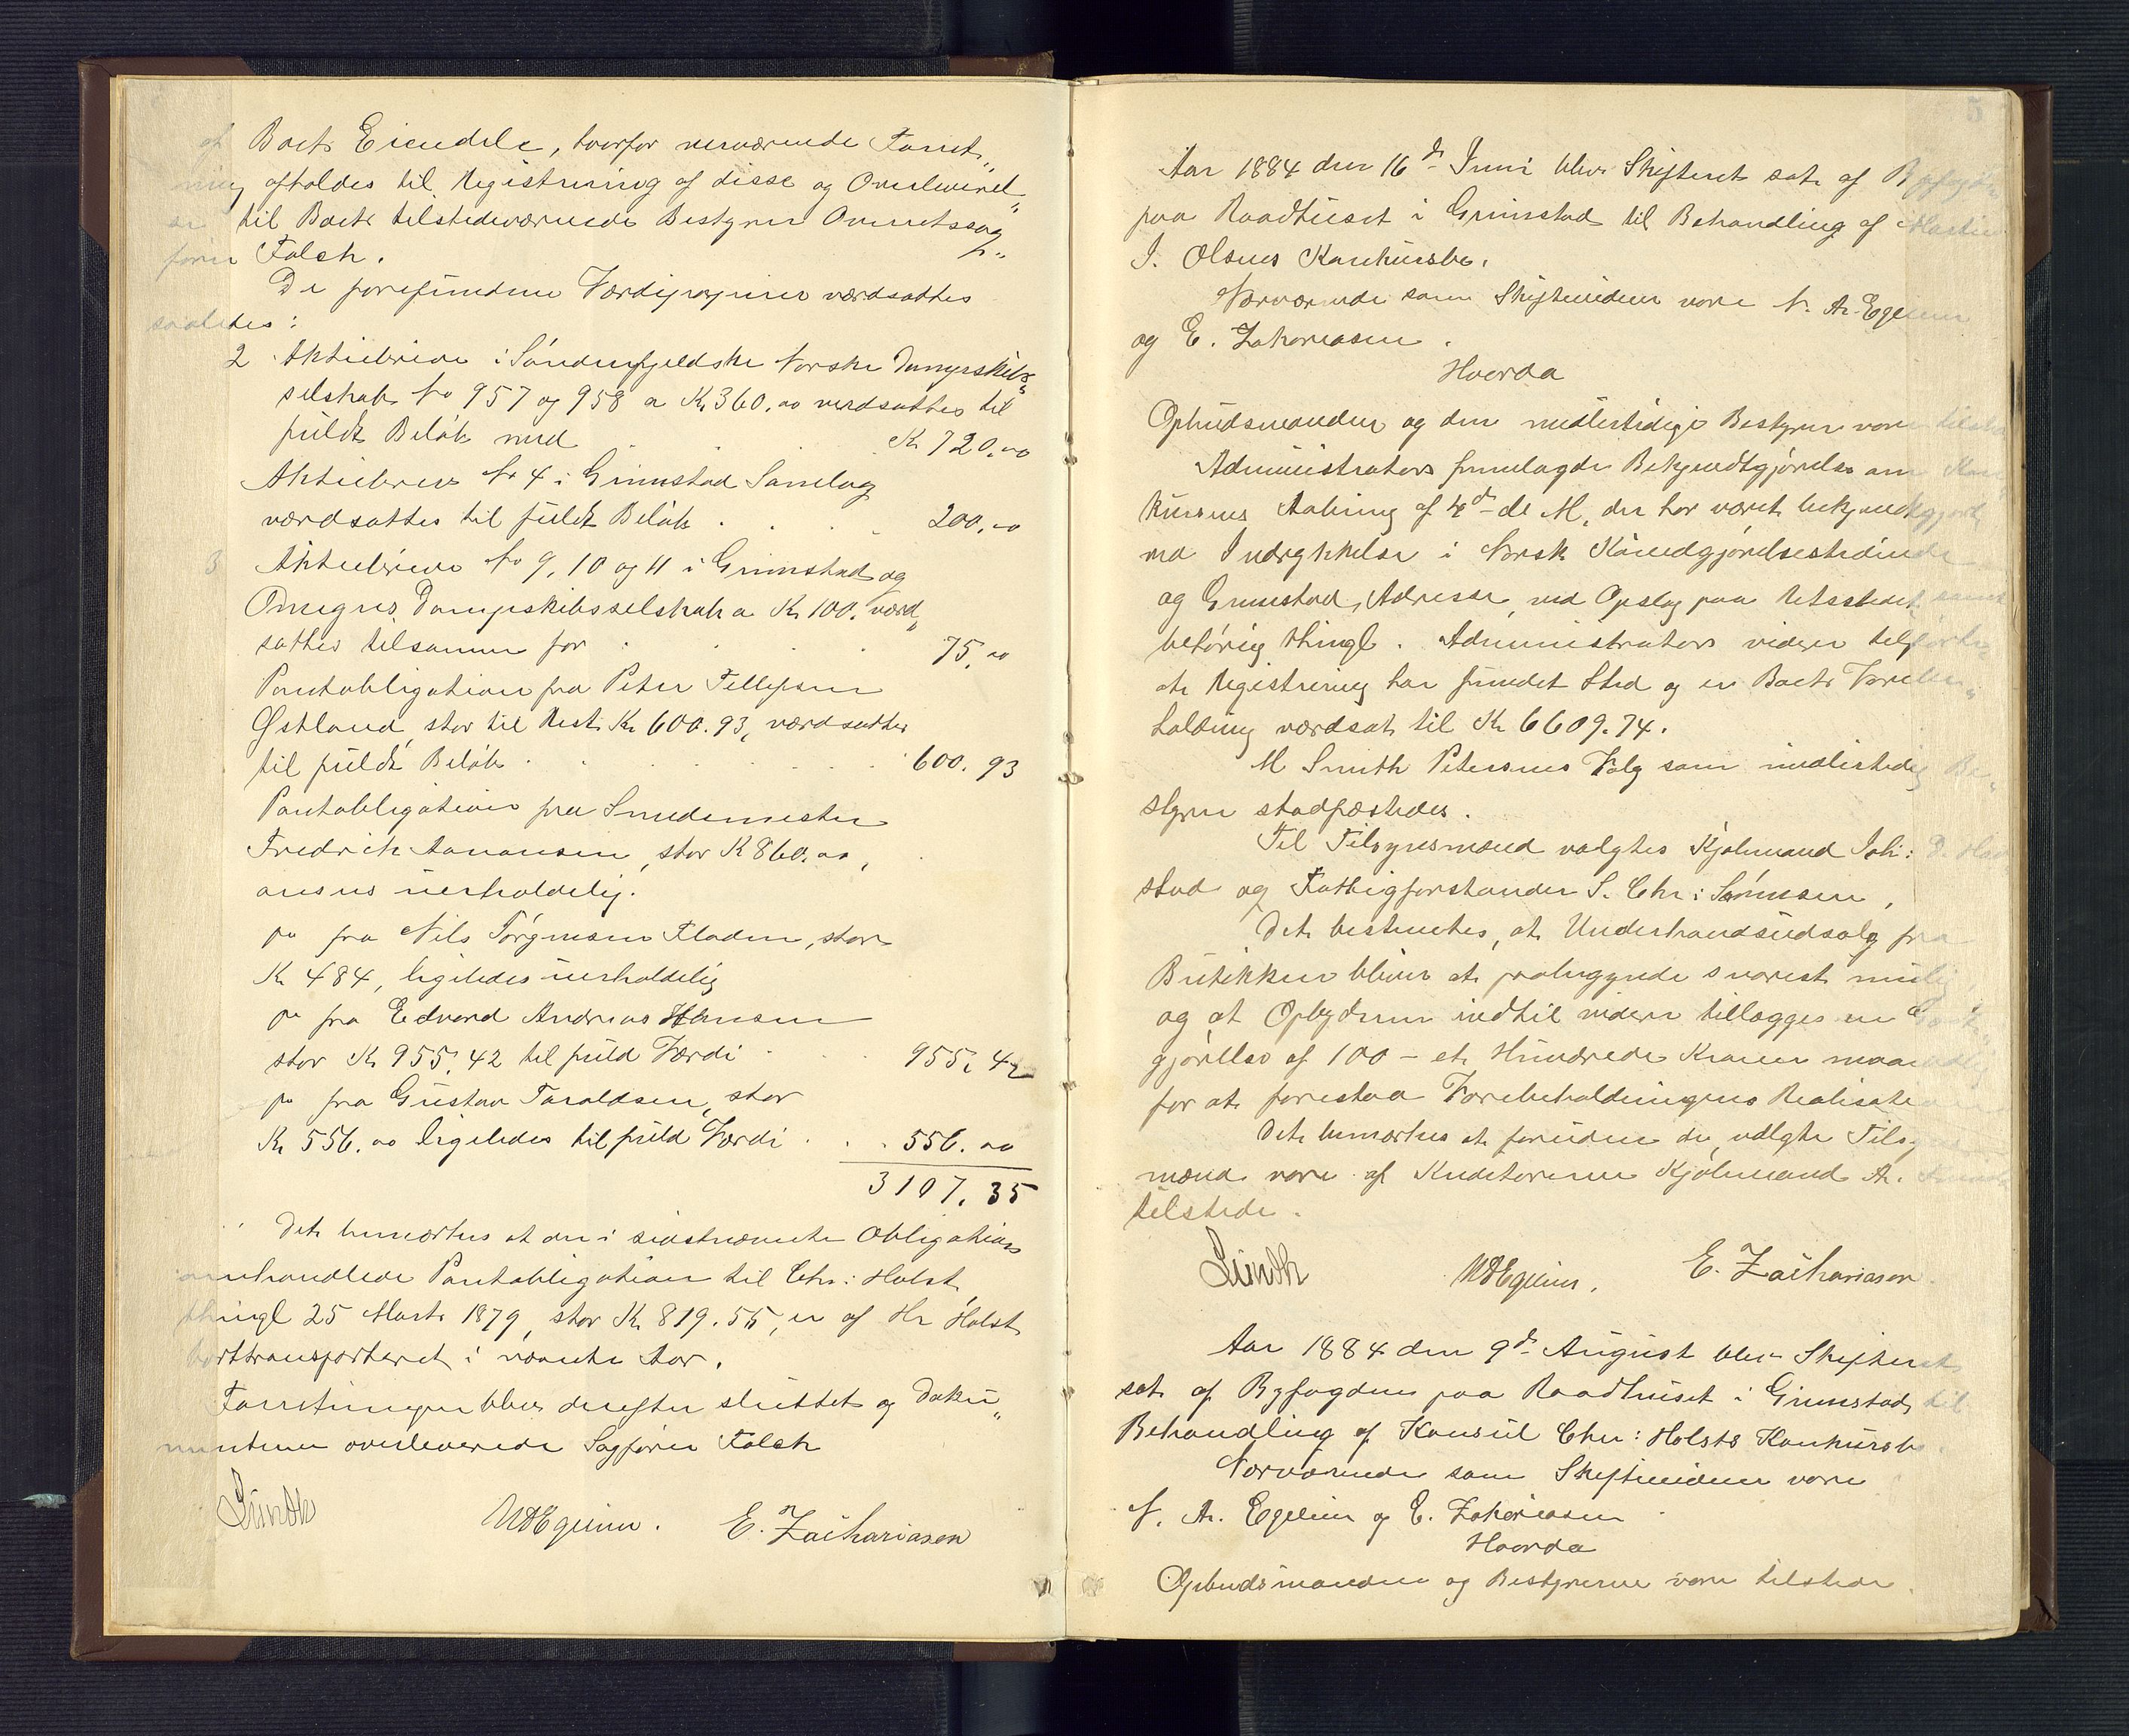 af Boets Eiendele, hvorfor nærværende Forret„
ning afholdes til Registrering af disse og Overleverel„
se til Boets tilstedeværende Bestyrer Overretssag„
fører Falch.
De forefundne Værdipapirer værdsattes
saaledes:
2 Aktiebreve i Søndenfjeldske Norske Dampskibs„
selskab No 957 og 958 a Kr 360.00 værdsattes til
fuldt Beløb med . . . Kr 720.00
Aktiebrev No 4 i Grimstad Samlag
værdsattes til fuldt Beløb . . . 200.00
3 Aktiebreve No 9, 10 og 11 i Grimstad og
Omegns Dampskibsselskab a Kr 100. værd„
sattes tilsammen for . . . 75.00
Pantobligation fra Peter Tellefsen
Østland, stor til Rest Kr 600.93, værdsattes
til fuldt Beløb . . . 600.93
Pantobligation fra Smedemester
Fredrik Aanonsen, stor K 860.00,
ansees uerholdelig.
do fra Nils Jørgensen Fladen, stor
Kr 484, ligeledes uerholdelig
do fra Edvard Andreas Hansen
stor Kr 955.42 til fuld Værdi . . . 955.42
do fra Gustav Taraldsen, stor
Kr 556.00 ligeledes til fuld Værdi . . . 556.00
3107.35
Det bemærkes at den i sidstnævnte Obligation
omhandlede Pantobligation til Chr: Holst,
thingl 25 Marts 1879, stor Kr. 819.55, er af Hr Holst
borttransporteret i nævnte Aar.
Forretningen blev derefter sluttet og Doku„
menterne overleverede Sagfører Falch
Lindth NAEgelius. E. Zachariasen
5
Aar 1884 den 16de Juni blev Skifteret sat af Byfogden
paa Raadhuset i Grimstad til Behandling af Martin
J. Olsens Konkursbo.
Nærværende som Skiftevidner vare N. A. Egelius
og E. Zakariasen.
Hvorda
Opbudsmanden og den midlertidige Bestyrer vare tilstede
Administrator fremlagde Bekjendtgjørelse om Kon„
kursens Aabning af 4de ds M, der har været bekjendtgjort
ved Indrykkelse i Norsk Kundgjørelsestidende
og Grimstad Adresse, ved Opslag paa Retsstedet samt
behørig thingl. Administrator videre tilførte,
at Registrering har fundet Sted og er Boets Varebe„
holdning værdsat til Kr 6609.74.
M Smith Petersens Valg som midlertidig Be„
styrer stadfæstedes.
Til Tilsynsmænd valgtes Kjøbmand Joh:
stad og Fattigforstander S. Chr: Sørensen,
Det bestemtes, at Underhaandsudsalg fra
Butikken bliver at paabegynde snarest mulig,
og at Opbyderen indtil videre tillægges en Godt„
gjørelse af 100 – et Hundrede Kroner maanedlig
for at forestaa Varebeholdningens Realisation
Det bemærkes at foruden de valgte Tilsyns
mænd vare af Kreditorerne Kjøbmand A.
tilstede.
Lindth NAEgelius. E. Zachariasen
Aar 1884 den 9de August blev Skifteret
sat af Byfogden paa Raadhuset i Grimstad til
Behandling af Konsul Chr: Holsts Konkursbo.
Nærværende som Skiftevidner vare
N. A. Egelius og E. Zakariasen
Hvorda
Opbudsmanden og Bestyrerne vare tilstede.